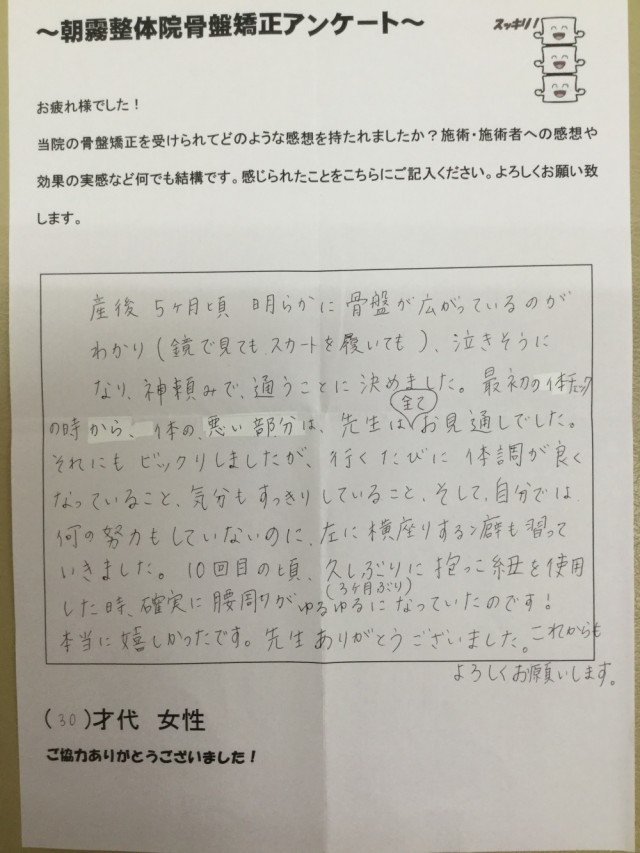 ～朝霧整体院骨盤矯正アンケート～
スッキリ！
お疲れ様でした！
当院の骨盤矯正を受けられてどのような感想を持たれましたか？施術・施術者への感想や
効果の実感など何でも結構です。感じられたことをこちらにご記入ください。よろしくお願い致
します。
産後 5ヶ月頃 明らかに骨盤が広がっているのが
わかり（鏡で見てもスカートを履いても）、泣きそうに
なり、神頼みで、通うことに決めました。最初の体チェック
の時から、体の、悪い部分は、先生は全てお見通しでした。
それにもビックリしましたが、行くたびに体調が良く
なっていること、気分もすっきりしていること、そして、自分では
何の努力もしていないのに、左に横座りする癖も習って
いきました。10回目の頃、久しぶりに抱っこ紐を使用
（3ヶ月ぶり）
した時、確実に腰周りがゆるゆるになっていたのです！
本当に嬉しかったです。先生ありがとうございました。これからも
よろしくお願いします。
（30）才代 女性
ご協力ありがとうございました！